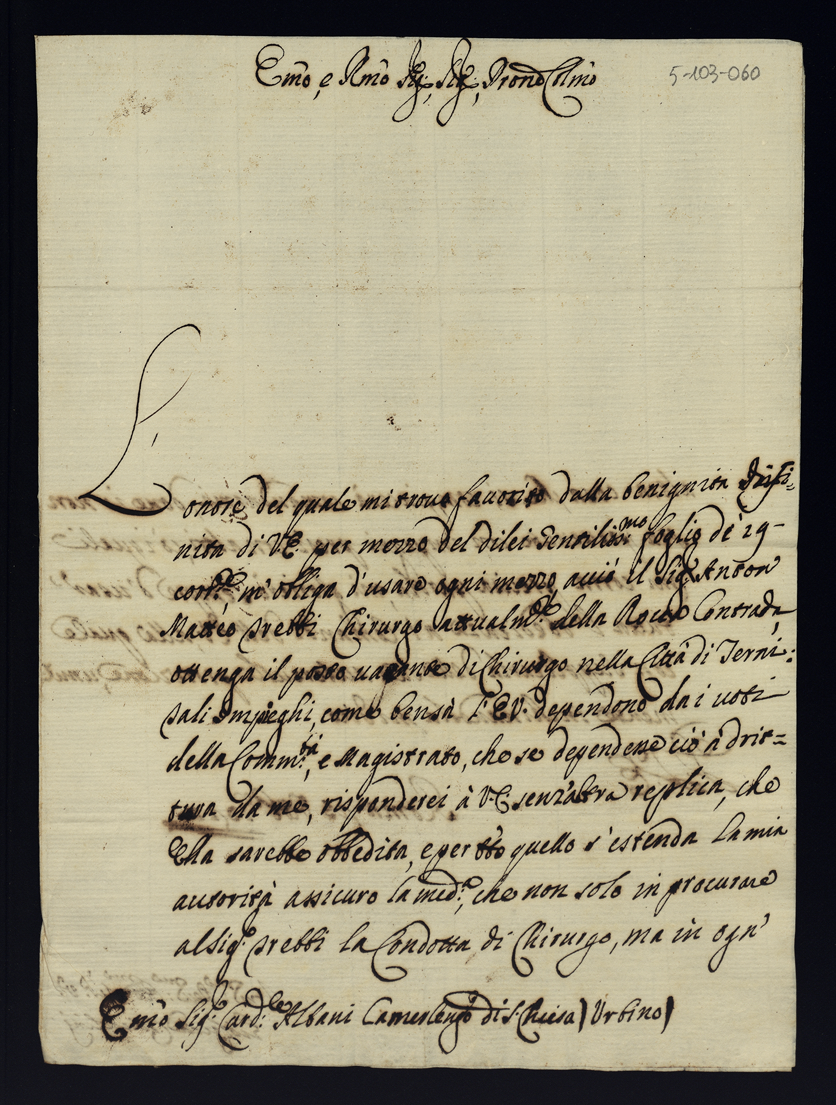 Emo, e Rmo Sig:, Sig:, Prone Colmo
5-103-060
L'
onore del quale mi trovo favorito dalla benignita Infi=
nita di V.E. per mezzo del dilei Gentilissmo foglio de' 29-
corrte, m'obliga d'usare ogni mezzo, acciò il Sigr Anton'
Matteo Strebbi Chirurgo attualmte della Rocca Contrada,
ottenga il posto vacante di Chirurgo nella Città di Terni:
Tali Impieghi, come bensà l'E.V. dependono dai voti
della Commtà, e Magistrato, che se dependesse ciò a drit=
tura da me, risponderei à V.E. senz'altra replica, che
Ella sarebbe obbedita, e per tto quello s'estenda la mia
autorità assicuro la medª, che non solo in procurare
al Sigr Strebbi la Condotta di Chirurgo, ma in ogn'
Emo Sigr Cardle Albani Camerlengo di S. Chiesa) Urbino)